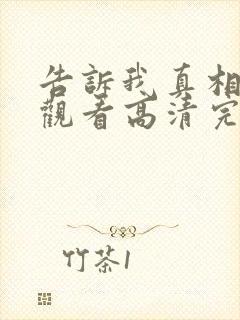 告訴我真相
觀看高清完
竹茶1